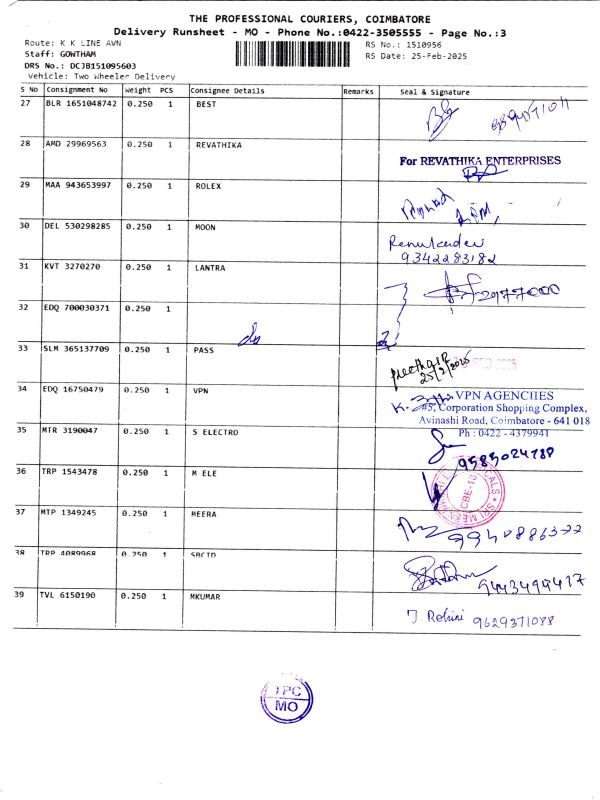 THE PROFESSIONAL COURIERS, COIMBATORE
Delivery Runsheet - MO - Phone No.:0422-3505555 - Page No.:3
Route: K K LINE AVN
RS No.: 1510956
Staff: GOWTHAM
RS Date: 25-Feb-2025
DRS No.: DCJB151095603
Vehicle: Two Wheeler Delivery
S No Consignment No Weight PCS Consignee Details Remarks Seal & Signature
27 BLR 1651048742 0.250 1 BEST
28 AMD 29969563 0.250 1 REVATHIKA
For REVATHIKA ENTERPRISES
29 MAA 943653997 0.250 1 ROLEX
30 DEL 530298285 0.250 1 MOON
9342283182
31 KVT 3270270 0.250 1 LANTRA
32 EDQ 700030371 0.250 1
33 SLM 365137709 0.250 1 PASS
25/2/2025
34 EDQ 16750479 0.250 1 VPN
VPN AGENCIIES
#5, Corporation Shopping Complex,
Avinashi Road, Coimbatore - 641 018
Ph : 0422 - 4379941
35 MTR 3190047 0.250 1 S ELECTRO
9585024788
36 TRP 1543478 0.250 1 M ELE
37 MTP 1349245 0.250 1 MEERA
38 TRP 4089968 0.250 1 SBCTD
9443499417
39 TVL 6150190 0.250 1 MKUMAR
J Rohini 9629371088
TPC
MO